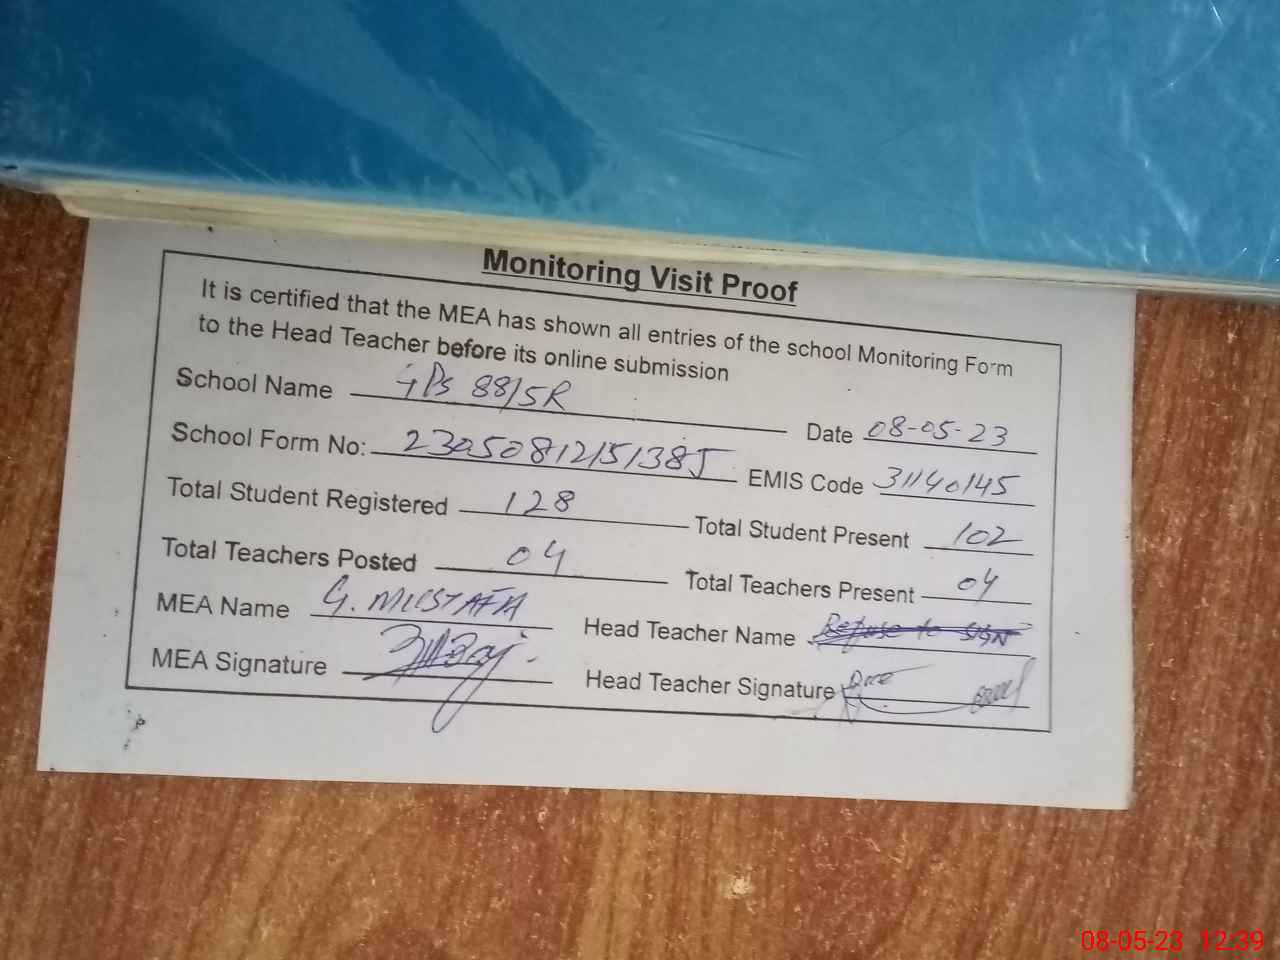 Monitoring Visit Proof
It is certified that the MEA has shown all entries of the school Monitoring Form
to the Head Teacher before its online submission
School Name GPs 88/5R Date 08-05-23
School Form No: 23050812151385 EMIS Code 31140145
Total Student Registered 128 Total Student Present 102
Total Teachers Posted 04 Total Teachers Present 04
MEA Name G. MUSTAFA Head Teacher Name Refuse to SIGN
MEA Signature Head Teacher Signature
08-05-23 12:39